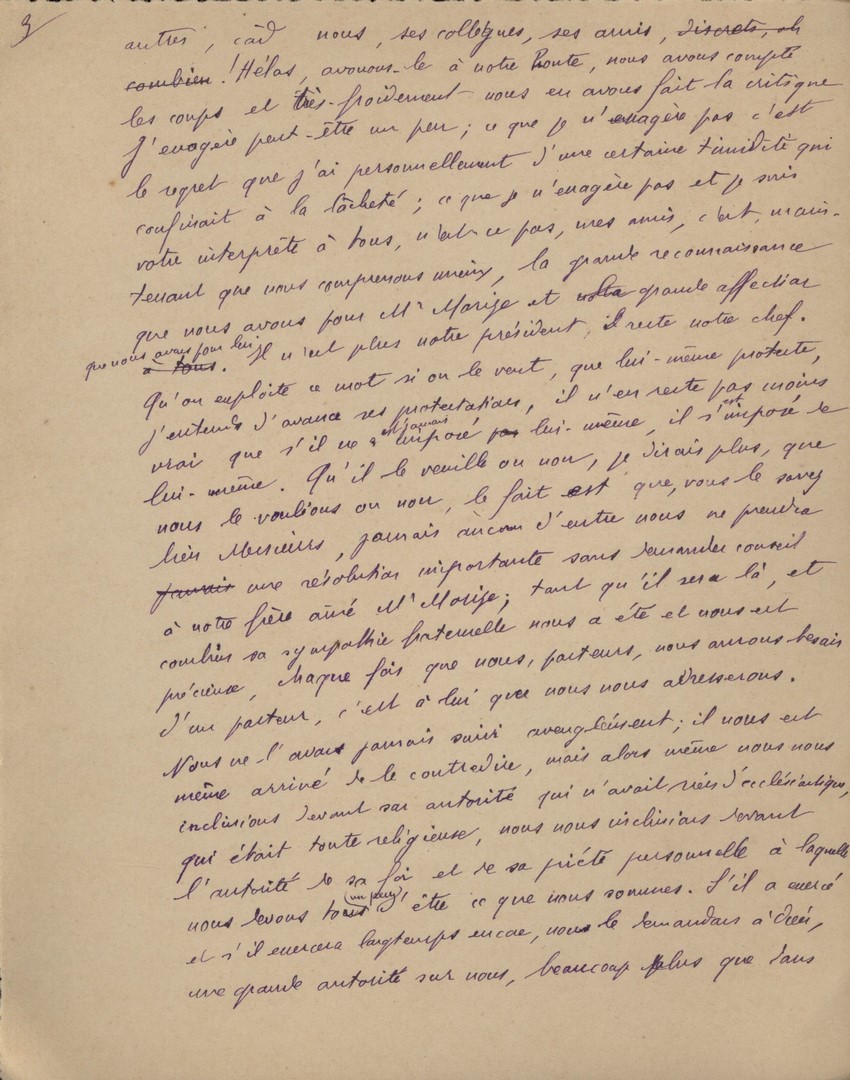 3/
autres, càd nous, ses collègues, ses amis, discrets, oh
combien! Hélas, avouons-le à notre honte, nous avons compté
les coups et très-froidement nous en avons fait la critique
J'exagère peut-être un peu; ce que je n'exagère pas c'est
le regret que j'ai personnellement d'une certaine timidité qui
confinait à la lâcheté; ce que je n'exagère pas et je suis
votre interprète à tous, n'est-ce pas, mes amis, c'est, main-
tenant que nous comprenons mieux, la grande reconnaissance
que nous avons pour Mr Morize et notre grande affection
que nous avons pour lui
à tous. Il n'est plus notre président, il reste notre chef.
Qu'on exploite ce mot si on le veut, que lui-même proteste,
j'entends d'avance ses protestations, il n'en reste pas moins
vrai que s'il ne s'est jamais imposé par lui-même, il s'est imposé de
lui-même. Qu'il le veuille ou non, je dirais plus, que
nous le voulions ou non, le fait est que, vous le savez
bien Messieurs, jamais aucun d'entre nous ne prendra
jamais une résolution importante sans demander conseil
à notre frère aîné Mr Morize; tant qu'il sera là, et
combien sa sympathie fraternelle nous a été et nous est
précieuse, chaque fois que nous, pasteurs, nous aurons besoin
d'un pasteur, c'est à lui que nous nous adresserons.
Nous ne l'avons jamais suivi aveuglément; il nous est
même arrivé de le contredire, mais alors même nous nous
inclinions devant son autorité qui n'avait rien d'ecclésiastique,
qui était toute religieuse, nous nous inclinions devant
l'autorité de sa foi et de sa piété personnelle à laquelle
nous devons tous (un peu) d'être ce que nous sommes. S'il a exercé
et s'il exercera longtemps encore, nous le demandons à Dieu,
une grande autorité sur nous, beaucoup plus que dans